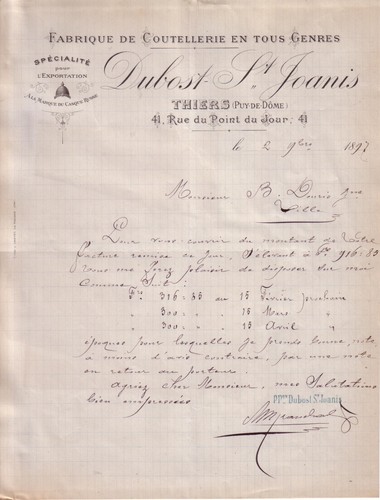 FABRIQUE DE COUTELLERIE EN TOUS GENRES
SPÉCIALITÉ
pour
L'EXPORTATION
A LA MARQUE DU CASQUE RUSSE
Dubost-St Joanis
THIERS (PUY-DE-DÔME)
41, Rue du Point du Jour, 41
le 2 9bre 1897
Monsieur B.
Ville
Pour vous couvrir du montant de votre
facture remise ce jour, s'élevant à Frs 916:85
vous me ferez plaisir de disposer sur moi
comme suit:
Frs 316:85 au 15 Février prochain
300: " 15 Mars "
300: " 15 Avril "
époques pour lesquelles je prends bonne note,
à moins d'avis contraire, par une note
en retour du porteur.
Agréez cher Monsieur, mes salutations
bien empressées
PPon Dubost St Joanis